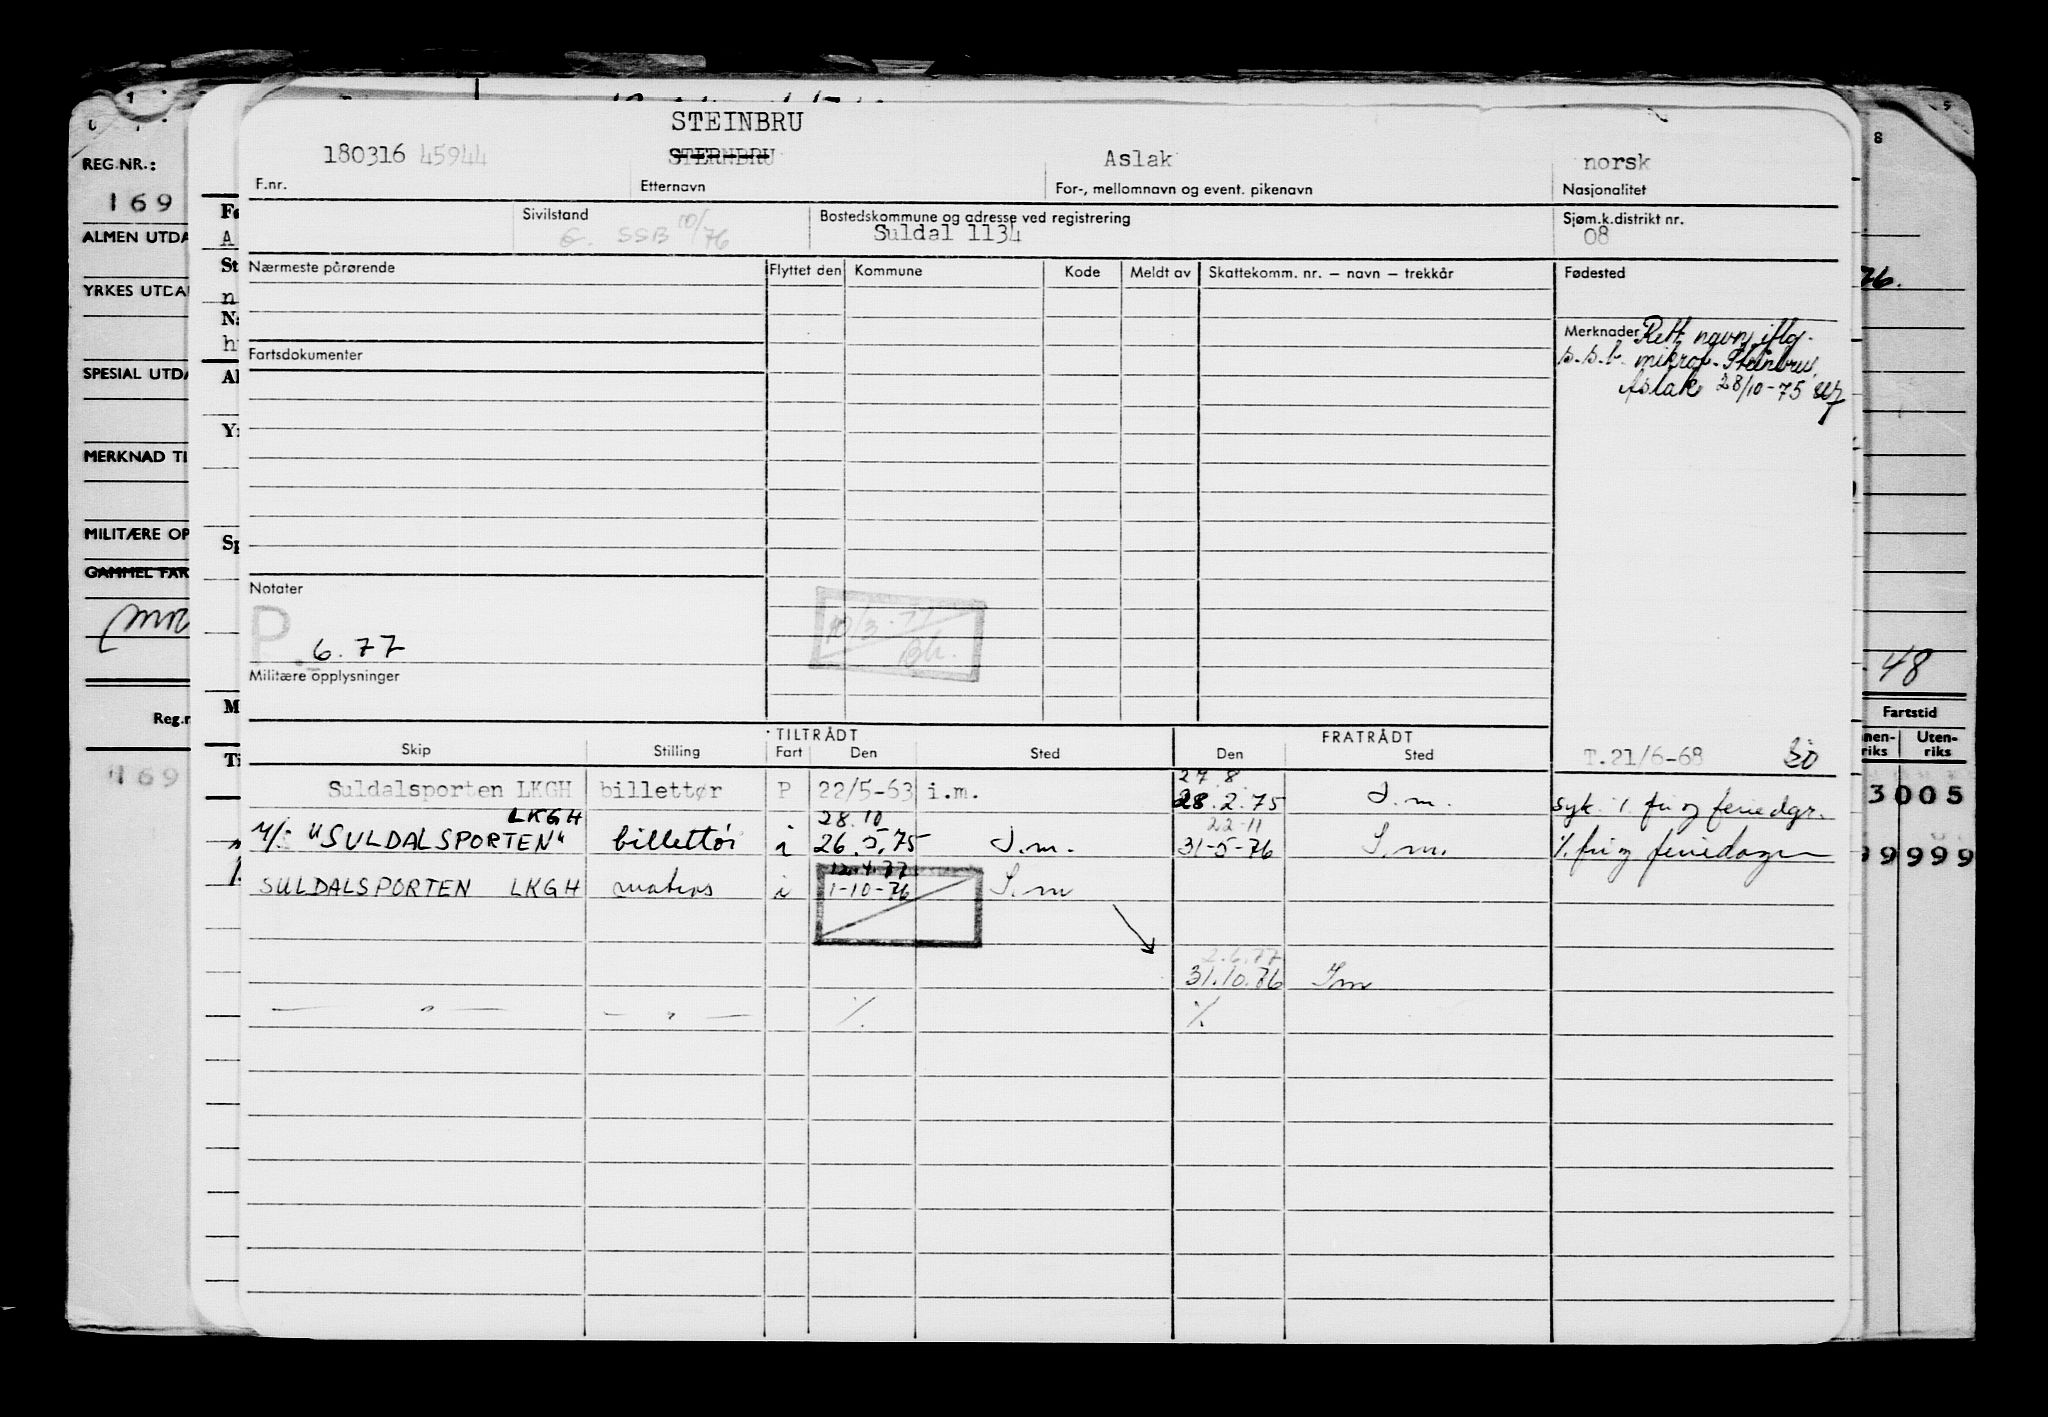 STEINBRU
180316 45944 STERNBRU Aslak norsk
F.nr. Etternavn For-, mellomnavn og event. pikenavn Nasjonalitet
REG.NR.:
169
ALMEN UTDA
YRKES UTDA
SPESIAL UTDA
MERKNAD TI
MILITÆRE OP
GAMMEL FAR
Reg.r
169
Fø
A
St
n
Na
h
Al
Yr
Sp
M
Ti
Sivilstand Bostedskommune og adresse ved registrering Sjøm.k.distrikt nr.
G. SSB 10/76 Suldal 1134 08
Nærmeste pårørende Flyttet den Kommune Kode Meldt av Skattekomm. nr. – navn – trekkår Fødested
Merknader Rett navn iflg.
s.s.b. mikrof. Steinbru,
Aslak 28/10-75
Fartsdokumenter
Notater
P. 6.77
10/3.77
Bh.
Militære opplysninger
TILTRÅDT FRATRÅDT
Skip Stilling Fart Den Sted Den Sted
T.21/6-68
27 8
Suldalsporten LKGH billettør P 22/5-63 i.m. 28.2.75 I.m. syk. 1. fri og feriedgr.
LKGH 28.10 22-11
M/S "SULDALSPORTEN" billettør i 26.5.75 I.m. 31-5-76 I.m. % fri og feriedager
12.4.77
SULDALSPORTEN LKGH matros i 1-10-76 I.m
2.6.77
31.10.76 Im
— " — — " — % %
8
76.
48
Fartstid
nen-
riks
Uten-
riks
3005
99999